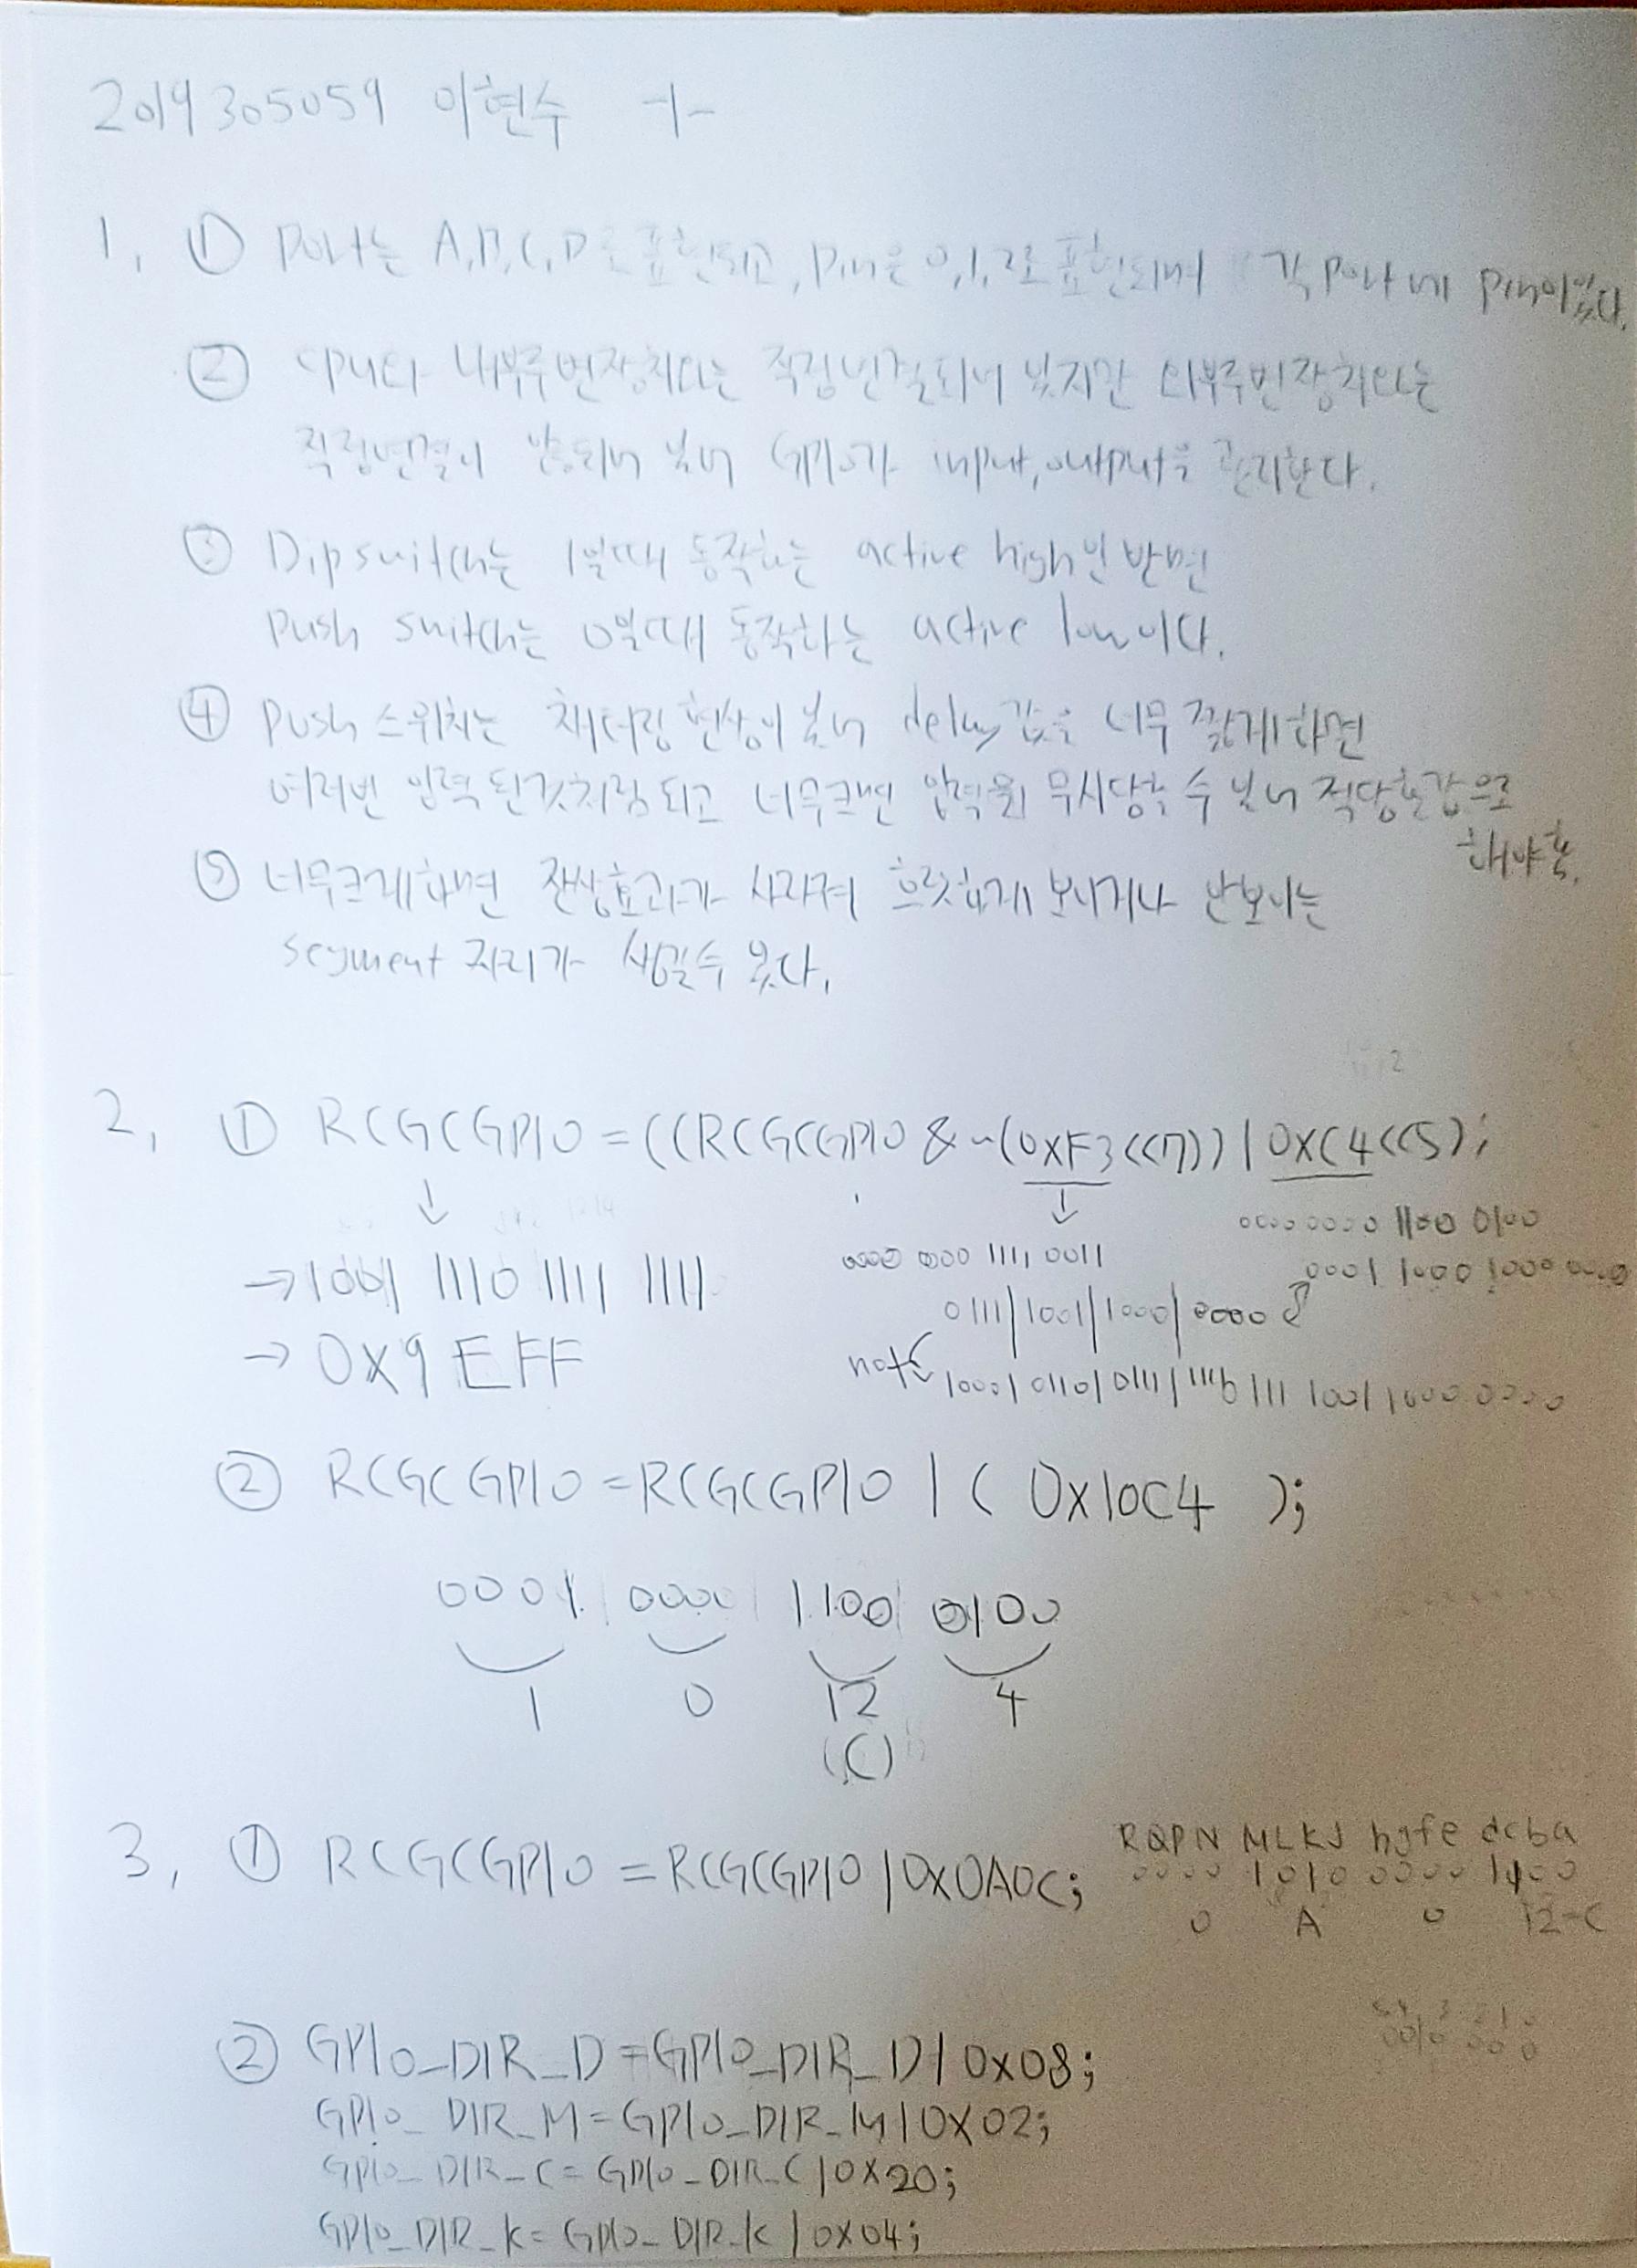 2019305059 이현수 -1-
1, ① Port는 A,B,C,D로 표현되고, Pin은 0,1,2로 표현되며 각 Port에 Pin이 있다.
② CPU와 내부주변장치와는 직접연결되어 있지만 외부주변장치와는
직접연결이 안되어 있어 GPIO가 input, output을 관리한다.
③ Dip switch는 1일때 동작하는 active high인 반면
Push switch는 0일때 동작하는 active low이다.
④ Push 스위치는 채터링 현상이 있어 delay값을 너무 짧게하면
여러번 입력된것처럼 되고 너무크면 입력을 무시당할 수 있어 적당한값으로
해야함.
⑤ 너무크게하면 잔상효과가 사라져 흐릿하게 보이거나 안보이는
segment 자리가 생길수 있다.
2, ① RCGCGPIO = ((RCGCGPIO & ~(0xF3<<7)) | 0xC4<<5);
↓ ↓ 0000 0000 1100 0100
→ 1001 1110 1111 1111 0000 0000 1111 0011 0001 1000 1000 0000
0111|1001|1000|0000
→ 0x9EFF not 1000|0110|0111|1111 111 1001 1000 0000
② RCGCGPIO = RCGCGPIO | ( 0x10C4 );
0001 0000 1100 0100
1 0 12 4
(C)
3, ① RCGCGPIO = RCGCGPIO | 0x0A0C; RQPN MLKJ hgfe dcba
0000 1010 0000 1100
0 A 0 12-C
② GPIO_DIR_D = GPIO_DIR_D | 0x08;
GPIO_DIR_M = GPIO_DIR_M | 0x02;
GPIO_DIR_C = GPIO_DIR_C | 0x20;
GPIO_DIR_K = GPIO_DIR_K | 0x04;